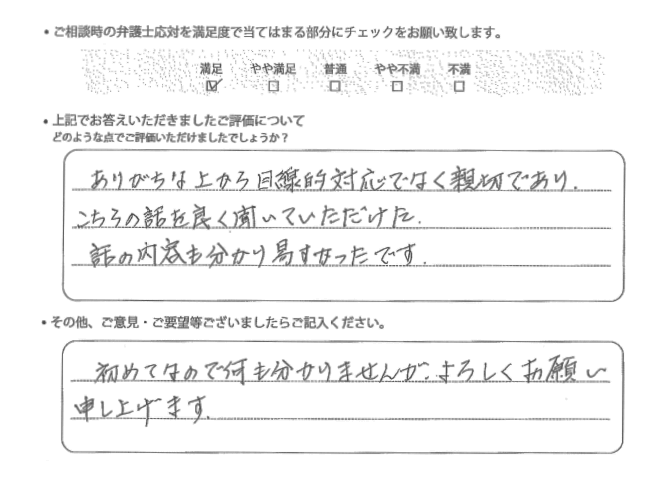 ・ご相談時の弁護士応対を満足度で当てはまる部分にチェックをお願い致します。
満足 やや満足 普通 やや不満 不満
☑ □ □ □ □
・上記でお答えいただきましたご評価について
どのような点でご評価いただけましたでしょうか？
ありがちな上から目線的対応でなく親切であり、
こちらの話を良く聞いていただけた。
話の内容も分かり易すかったです。
・その他、ご意見・ご要望等ございましたらご記入ください。
初めてなので何も分かりませんが、よろしくお願い
申し上げます。